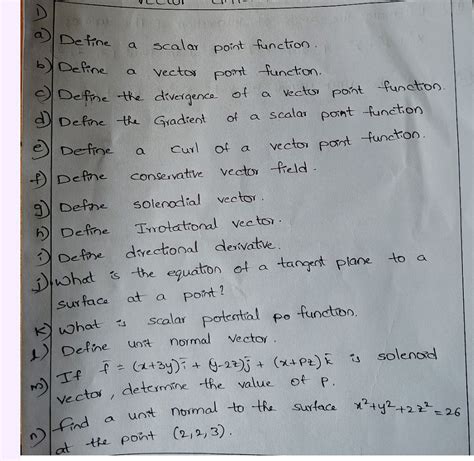 1)
a) Define a scalar point function.
b) Define a vector point function.
c) Define the divergence of a vector point function.
d) Define the Gradient of a scalar point function
e) Define a curl of a vector point function.
f) Define conservative vector field.
g) Define solenodial vector.
h) Define Irrotational vector.
i) Define directional derivative.
j) What is the equation of a tangent plane to a
surface at a point?
k) What is scalar potential po function.
l) Define unit normal vector.
m) If f̄ = (x+3y)ī + (y-2z)j̄ + (x+pz)k̄ is solenoid
vector, determine the value of p.
n) find a unit normal to the surface x²+y²+2z²=26
at the point (2,2,3).